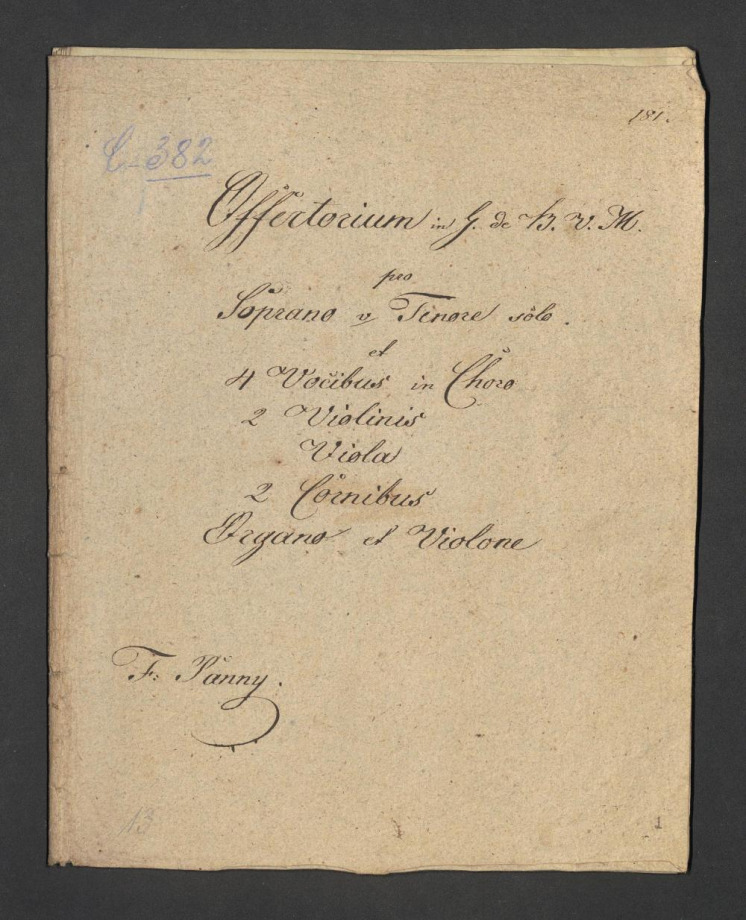 181.
C-382
Offertorium in G. de B. V. M.
pro
Soprano v Tenore solo.
et
4 Vocibus in Choro
2 Violinis
Viola
2 Cornibus
Organo et Violone
F. Panny.
13
1